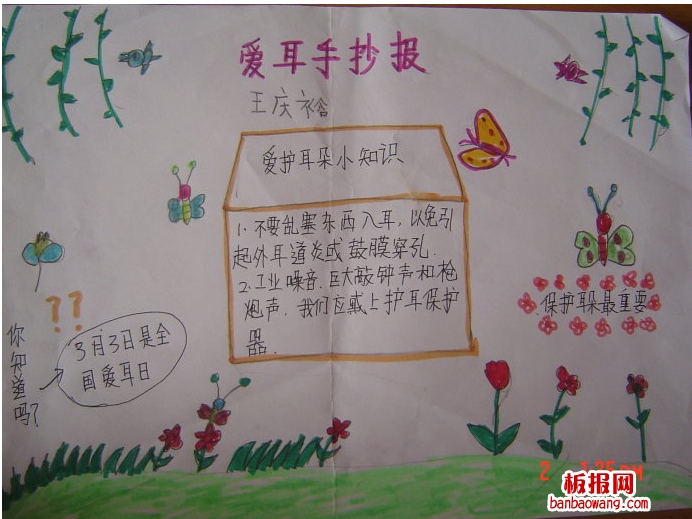 爱耳手抄报
王庆裕
爱护耳朵小知识
1.不要乱塞东西入耳,以免引
起外耳道炎或鼓膜穿孔.
2.工业噪音.巨大敲钟声和枪
炮声.我们应戴上护耳保护
器.
保护耳朵最重要
??
你知道吗?
3月3日是全
国爱耳日
板报网
banbaowang.com